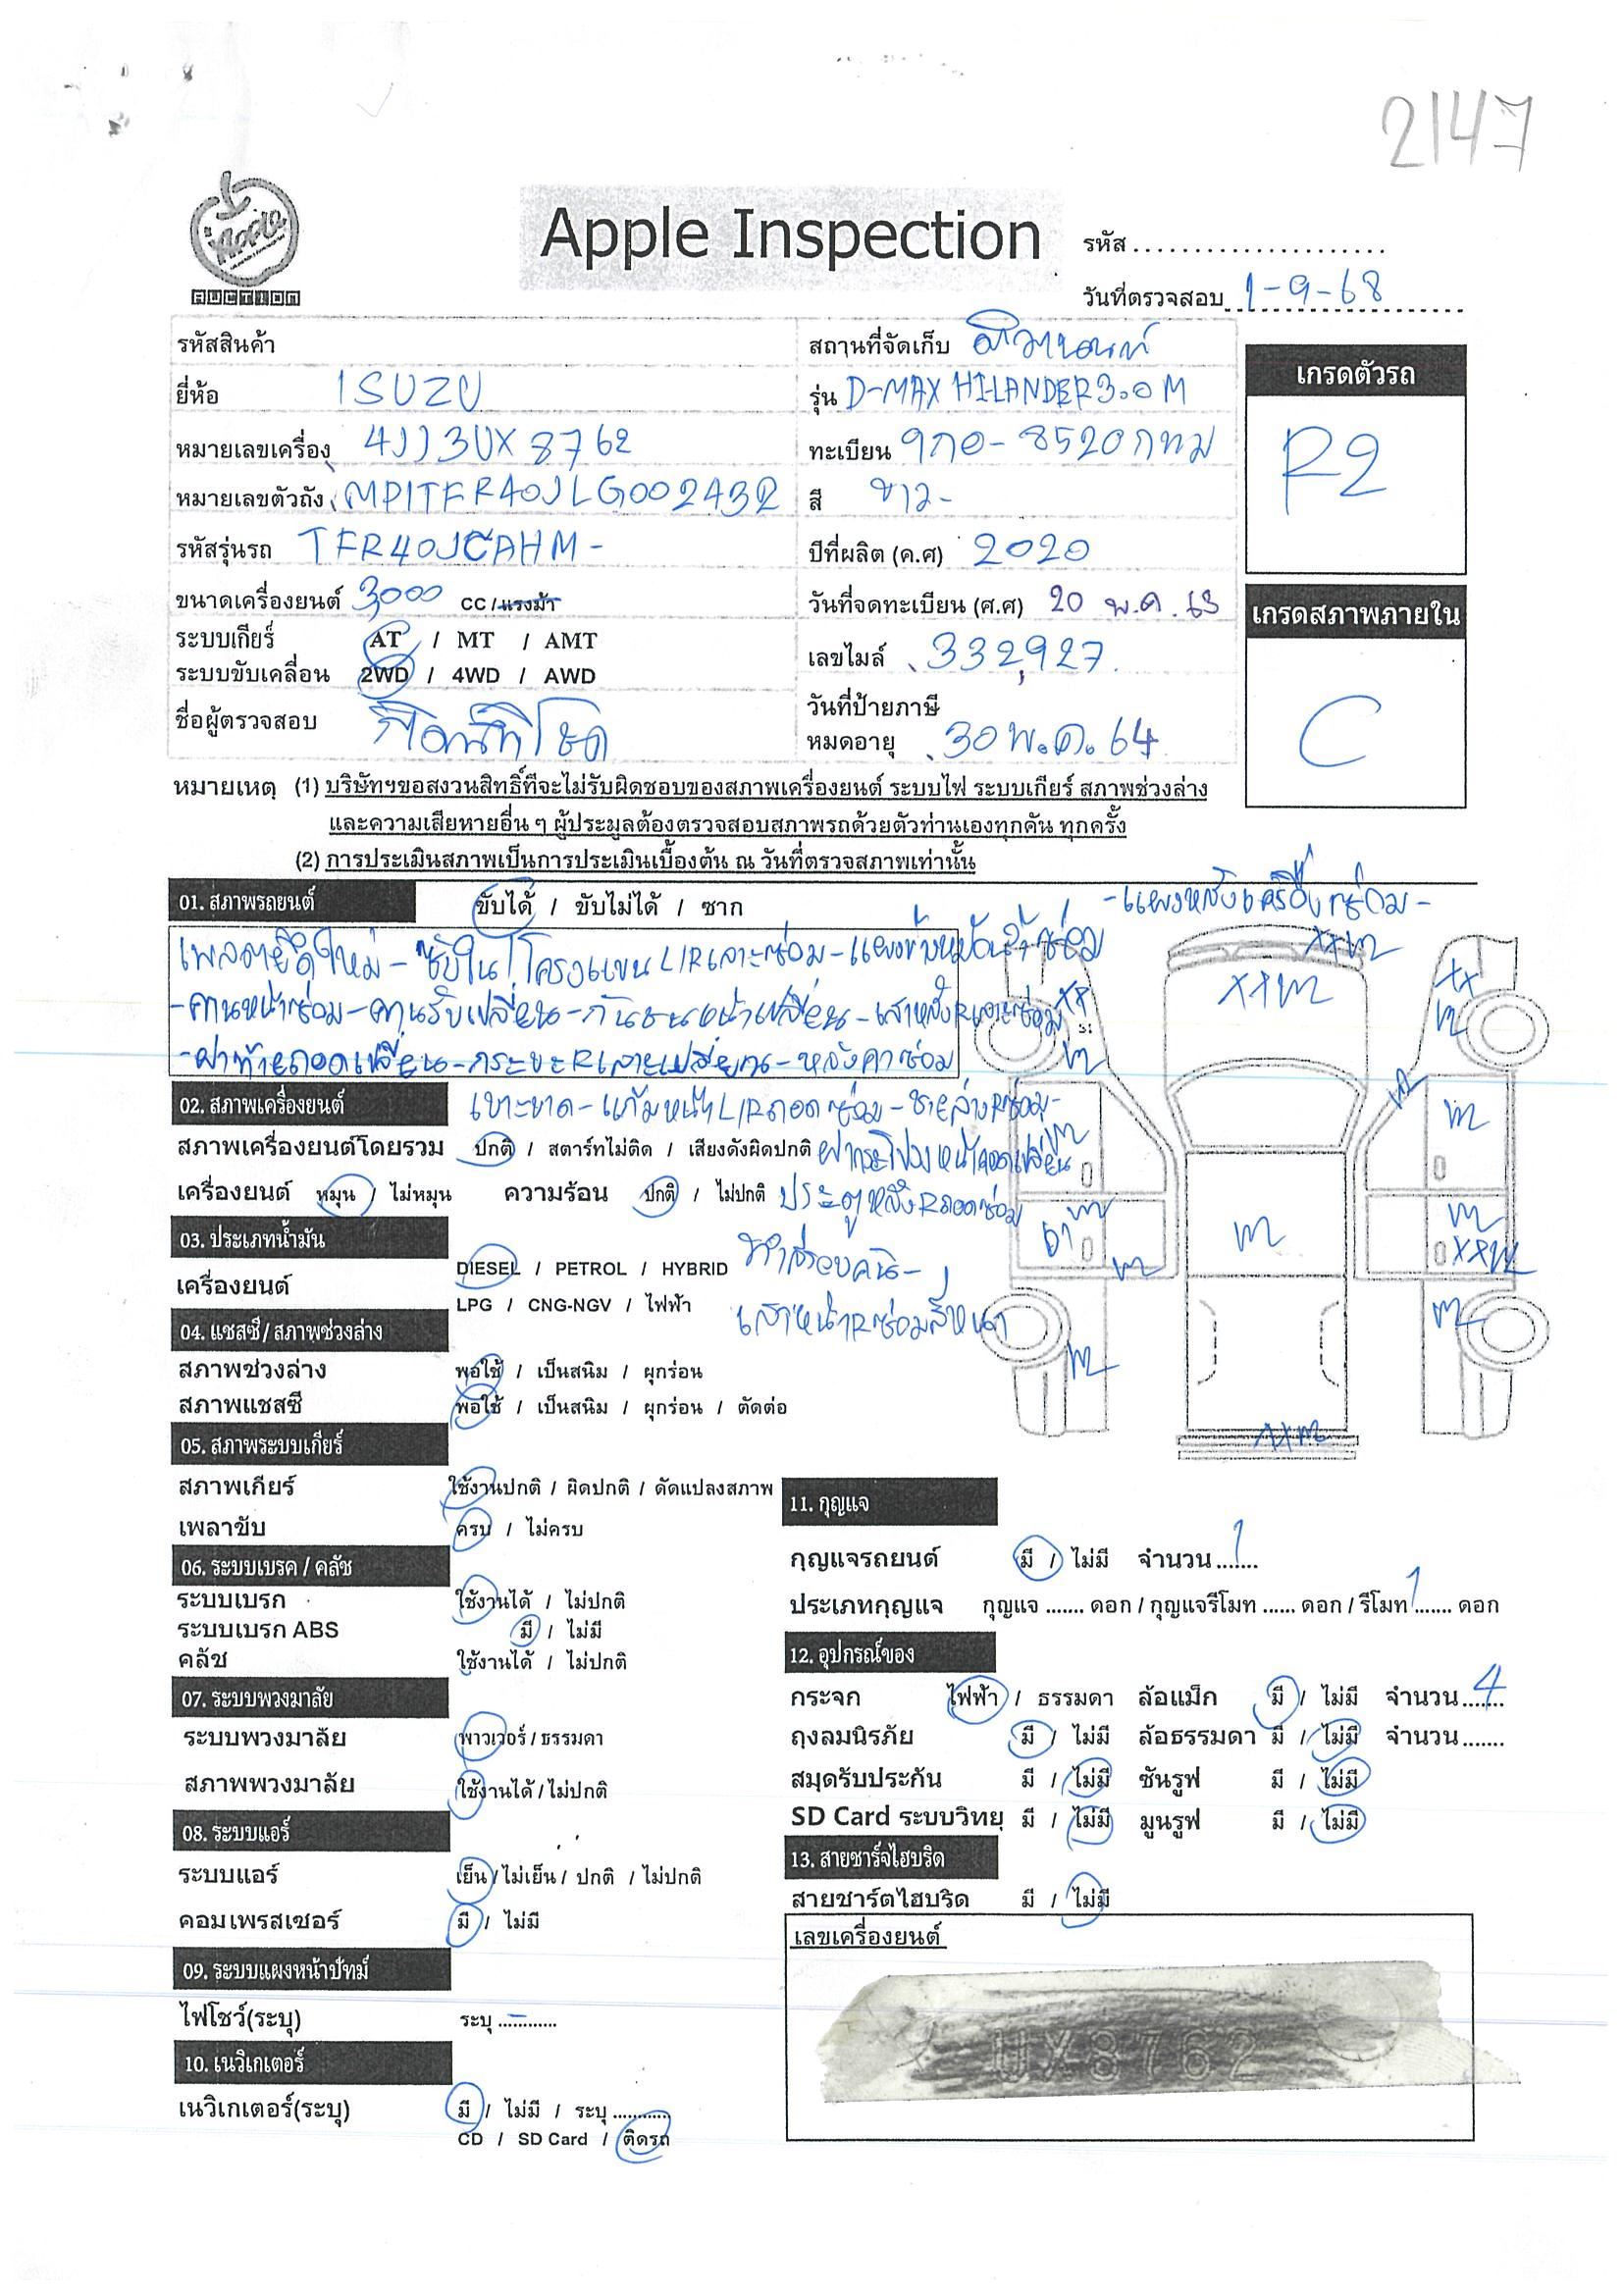 2147
Apple
AUCTION
Apple Inspection
รหัส.....................
วันที่ตรวจสอบ 1-9-68
รหัสสินค้า
สถานที่จัดเก็บ ติวานนท์
ยี่ห้อ ISUZU
รุ่น D-MAX HI-LANDER 3.0 M
หมายเลขเครื่อง 4JJ3UX8762
ทะเบียน 9กอ-8520 กทม
หมายเลขตัวถัง MP1TFR40JLG002432
สี ขาว-
รหัสรุ่นรถ TFR40JCAHM-
ปีที่ผลิต (ค.ศ) 2020
ขนาดเครื่องยนต์ 3000 CC/แรงม้า
วันที่จดทะเบียน (ศ.ศ) 20 พ.ค. 63
ระบบเกียร์ AT / MT / AMT
เลขไมล์ 332,927
ระบบขับเคลื่อน 2WD / 4WD / AWD
ชื่อผู้ตรวจสอบ
วันที่ป้ายภาษี
หมดอายุ 30 พ.ค. 64
เกรดตัวรถ
R2
เกรดสภาพภายใน
C
หมายเหตุ (1) บริษัทฯขอสงวนสิทธิ์ที่จะไม่รับผิดชอบของสภาพเครื่องยนต์ ระบบไฟ ระบบเกียร์ สภาพช่วงล่าง
และความเสียหายอื่น ๆ ผู้ประมูลต้องตรวจสอบสภาพรถด้วยตัวท่านเองทุกคัน ทุกครั้ง
(2) การประเมินสภาพเป็นการประเมินเบื้องต้น ณ วันที่ตรวจสภาพเท่านั้น
01. สภาพรถยนต์ ขับได้ / ขับไม่ได้ / ซาก
-แผงหลังเครื่องซ่อม-
เพลตยึดใหม่-ซับในโครงแขนL/Rเลาะซ่อม-แผงข้างหม้อน้ำซ่อม
-คานหน้าซ่อม-คานรับเปลี่ยน-กันชนหน้าเปลี่ยน-เสาหลังRเลาะซ่อม
-ฝาท้ายถอดเปลี่ยน-กระบะRเลาะเปลี่ยน-หลังคาซ่อม
02. สภาพเครื่องยนต์
เบาะขาด-แก้มหน้าL/Rถอดซ่อม-ชายล่างRซ่อม-
สภาพเครื่องยนต์โดยรวม ปกติ / สตาร์ทไม่ติด / เสียงดังผิดปกติ ฝากระโปรงหน้าถอดเปลี่ยน
เครื่องยนต์ หมุน / ไม่หมุน ความร้อน ปกติ / ไม่ปกติ ประตูหลังRถอดซ่อม
03. ประเภทน้ำมัน
เครื่องยนต์ DIESEL / PETROL / HYBRID ทำสีรอบคัน-
LPG / CNG-NGV / ไฟฟ้า เสาหน้าRซ่อมสีหนา
04. แชสซี/ สภาพช่วงล่าง
สภาพช่วงล่าง พอใช้ / เป็นสนิม / ผุกร่อน
สภาพแชสซี พอใช้ / เป็นสนิม / ผุกร่อน / ตัดต่อ
05. สภาพระบบเกียร์
สภาพเกียร์ ใช้งานปกติ / ผิดปกติ / ดัดแปลงสภาพ
เพลาขับ ครบ / ไม่ครบ
06. ระบบเบรค / คลัช
ระบบเบรก ใช้งานได้ / ไม่ปกติ
ระบบเบรก ABS มี / ไม่มี
คลัช ใช้งานได้ / ไม่ปกติ
07. ระบบพวงมาลัย
ระบบพวงมาลัย พาวเวอร์ / ธรรมดา
สภาพพวงมาลัย ใช้งานได้ / ไม่ปกติ
08. ระบบแอร์
ระบบแอร์ เย็น / ไม่เย็น / ปกติ / ไม่ปกติ
คอมเพรสเซอร์ มี / ไม่มี
09. ระบบแผงหน้าปัทม์
ไฟโชว์(ระบุ) ระบุ ....-.......
10. เนวิเกเตอร์
เนวิเกเตอร์(ระบุ) มี / ไม่มี / ระบุ ............
CD / SD Card / ติดรถ
11. กุญแจ
กุญแจรถยนต์ มี / ไม่มี จำนวน 1
ประเภทกุญแจ กุญแจ ....... ดอก / กุญแจรีโมท ...... ดอก / รีโมท 1 ดอก
12. อุปกรณ์ของ
กระจก ไฟฟ้า / ธรรมดา ล้อแม็ก มี / ไม่มี จำนวน 4
ถุงลมนิรภัย มี / ไม่มี ล้อธรรมดา มี / ไม่มี จำนวน.......
สมุดรับประกัน มี / ไม่มี ซันรูฟ มี / ไม่มี
SD Card ระบบวิทยุ มี / ไม่มี มูนรูฟ มี / ไม่มี
13. สายชาร์จไฮบริด
สายชาร์ตไฮบริด มี / ไม่มี
เลขเครื่องยนต์
UX8762